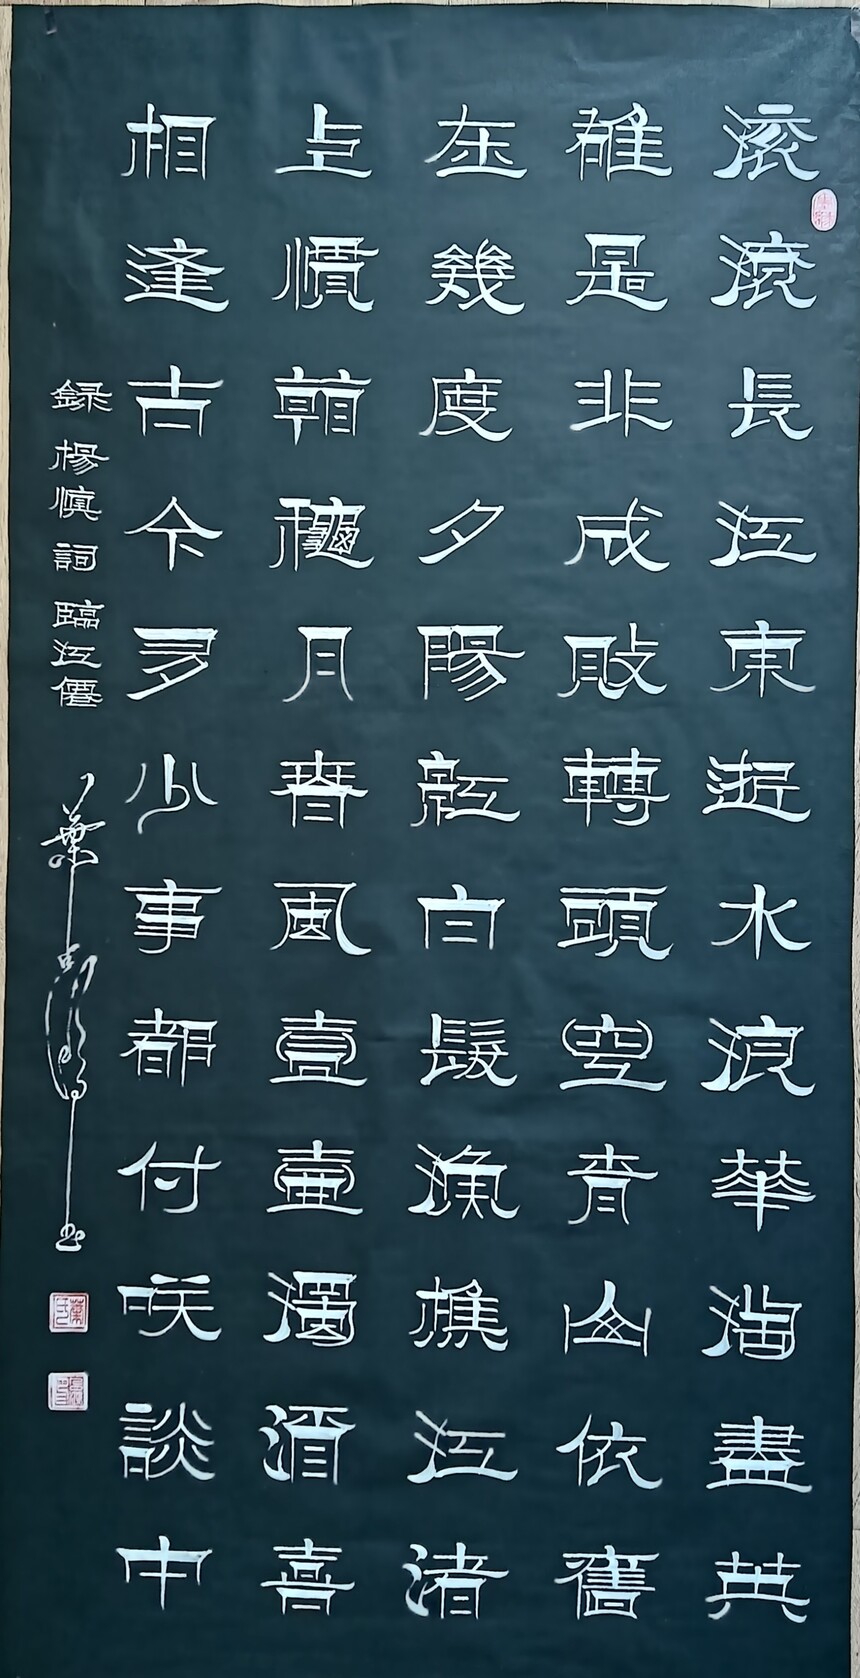 滾滾長江東逝水浪華淘盡英
雄是非成敗轉頭空青山依舊
在幾度夕陽紅白髮漁樵江渚
上慣看龝月春風壹壺濁酒喜
相逢古今多少事都付咲談中
録楊慎詞臨江僊
葉